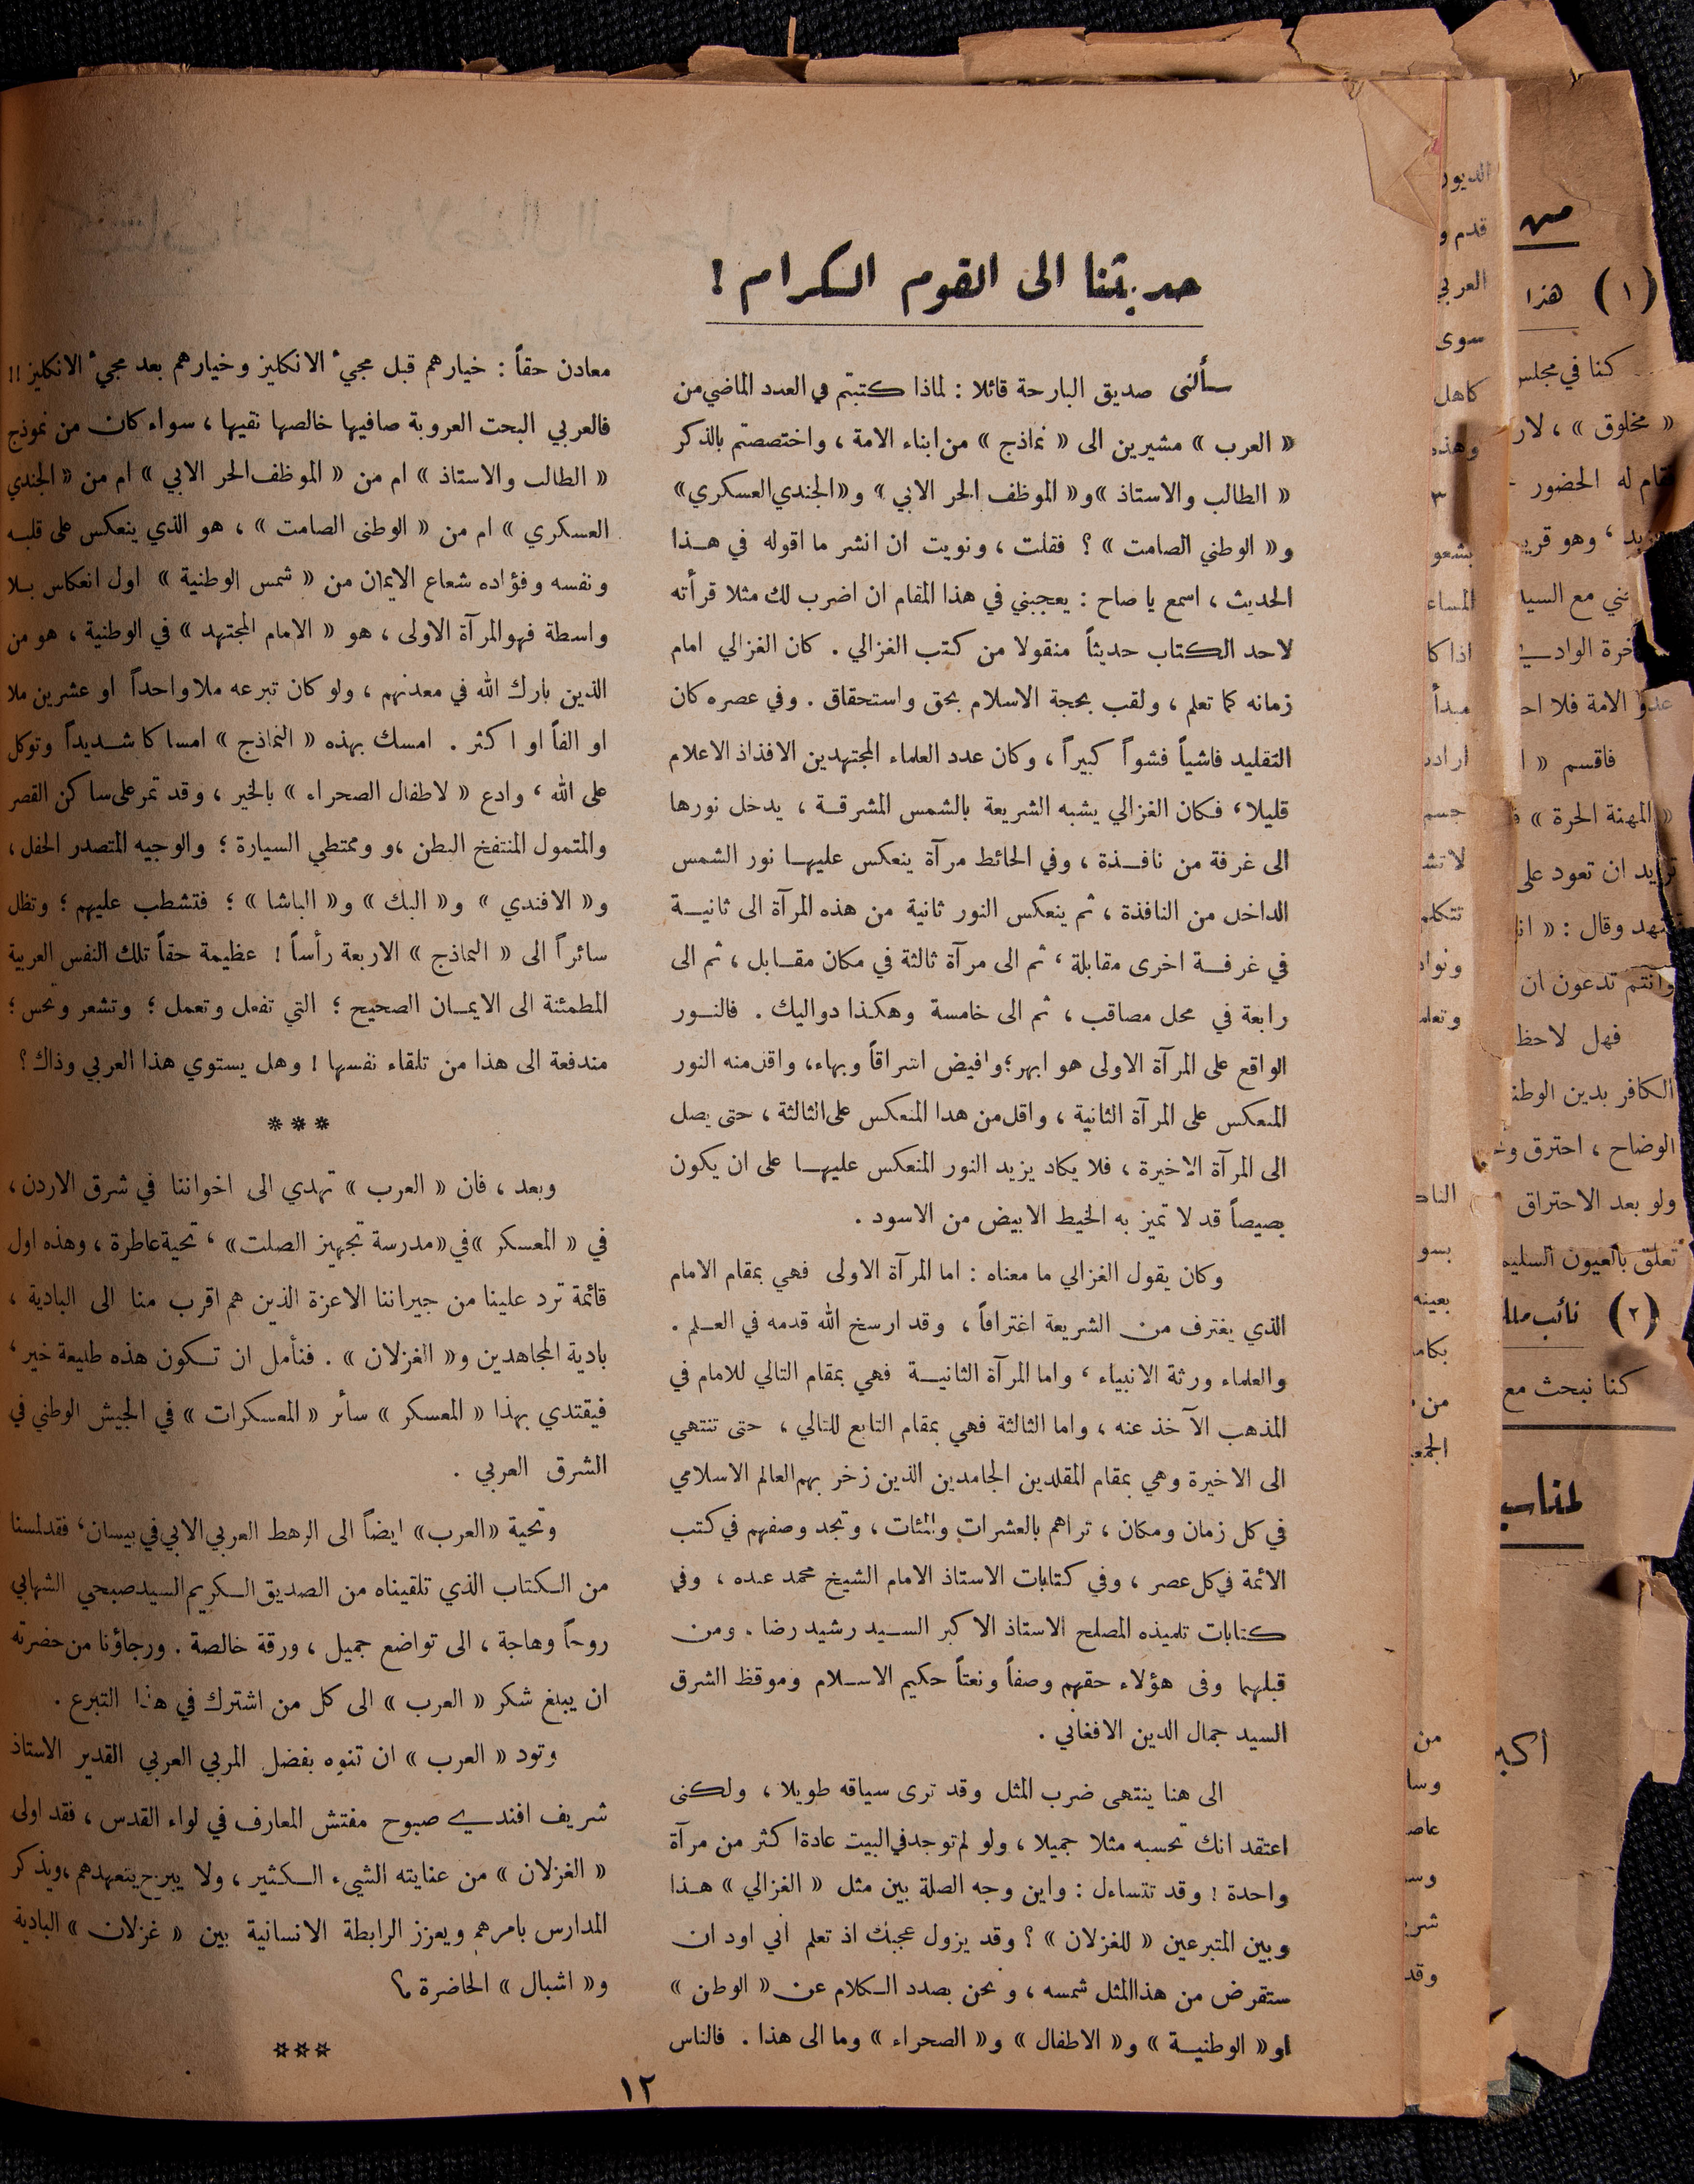 حديثنا الى القوم الكرام !
سألنى صديق البارحة قائلا : لماذا كتبتم في العدد الماضي من
« العرب » مشيرين الى « نماذج » من ابناء الامة ، واختصصتم بالذكر
« الطالب والاستاذ » و« الموظف الحر الابي » و« الجندي العسكري »
و« الوطني الصامت » ؟ فقلت ، ونويت ان انشر ما اقوله في هذا
الحديث ، اسمع يا صاح : يعجبني في هذا المقام ان اضرب لك مثلا قرأته
لاحد الكتاب حديثاً منقولا من كتب الغزالي . كان الغزالي امام
زمانه كما تعلم ، ولقب بحجة الاسلام بحق واستحقاق . وفي عصره كان
التقليد فاشياً فشواً كبيراً ، وكان عدد العلماء المجتهدين الافذاذ الاعلام
قليلا ، فكان الغزالي يشبه الشريعة بالشمس المشرقة ، يدخل نورها
الى غرفة من نافذة ، وفي الحائط مرآة ينعكس عليها نور الشمس
الداخل من النافذة ، ثم ينعكس النور ثانية من هذه المرآة الى ثانية
في غرفة اخرى مقابلة ، ثم الى مرآة ثالثة في مكان مقابل ، ثم الى
رابعة في محل مصاقب ، ثم الى خامسة وهكذا دواليك . فالنور
الواقع على المرآة الاولى هو ابهر ؛ وافيض اشراقاً وبهاء ، واقل منه النور
المنعكس على المرآة الثانية ، واقل من هذا المنعكس على الثالثة ، حتى يصل
الى المرآة الاخيرة ، فلا يكاد يزيد النور المنعكس عليها على ان يكون
بصيصاً قد لا تميز به الخيط الابيض من الاسود .
وكان يقول الغزالي ما معناه : اما المرآة الاولى فهي بمقام الامام
الذي يغترف من الشريعة اغترافاً ، وقد ارسخ الله قدمه في العلم .
والعلماء ورثة الانبياء ، واما المرآة الثانية فهي بمقام التالي للامام في
المذهب الآخذ عنه ، واما الثالثة فهي بمقام التابع للتالي ، حتى تنتهي
الى الاخيرة وهي بمقام المقلدين الجامدين الذين زخر بهم العالم الاسلامي
في كل زمان ومكان ، تراهم بالعشرات والمئات ، وتجد وصفهم في كتب
الائمة في كل عصر ، وفي كتابات الاستاذ الامام الشيخ محمد عبده ، وفي
كتابات تلميذه المصلح الاستاذ الاكبر السيد رشيد رضا . ومن
قبلهما وفى هؤلاء حقهم وصفاً ونعتاً حكيم الاسلام وموقظ الشرق
السيد جمال الدين الافغاني .
الى هنا ينتهى ضرب المثل وقد ترى سياقه طويلا ، ولكنى
اعتقد انك تحسبه مثلا جميلا ، ولو لم توجد في البيت عادة اكثر من مرآة
واحدة ! وقد تتساءل : واين وجه الصلة بين مثل « الغزالي » هذا
وبين المتبرعين « للغزلان » ؟ وقد يزول عجبك اذ تعلم اني اود ان
ستقرض من هذا المثل شمسه ، ونحن بصدد الكلام عن « الوطن »
او « الوطنية » و« الاطفال » و« الصحراء » وما الى هذا . فالناس
معادن حقاً : خيارهم قبل مجيء الانكليز وخيارهم بعد مجيء الانكليز !!
فالعربي البحت العروبة صافيها خالصها نقيها ، سواء كان من نموذج
« الطالب والاستاذ » ام من « الموظف الحر الابي » ام من « الجندي
العسكري » ام من « الوطنى الصامت » ، هو الذي ينعكس على قلبه
ونفسه وفؤاده شعاع الايمان من « شمس الوطنية » اول انعكاس بلا
واسطة فهو المرآة الاولى ، هو « الامام المجتهد » في الوطنية ، هو من
الذين بارك الله في معدنهم ، ولو كان تبرعه ملا واحداً او عشرين ملا
او الفاً او اكثر . امسك بهذه « النماذج » امساكا شديداً وتوكل
على الله ، وادع « لاطفال الصحراء » بالخير ، وقد تمر على ساكن القصر
والمتمول المنتفخ البطن ،و وممتطي السيارة ؛ والوجيه المتصدر الحفل ،
و« الافندي » و« البك » و« الباشا » ؛ فتشطب عليهم ؛ وتظل
سائراً الى « النماذج » الاربعة رأساً ! عظيمة حقاً تلك النفس العربية
المطمئنة الى الايمان الصحيح ؛ التي تفعل وتعمل ؛ وتشعر وتحس ؛
مندفعة الى هذا من تلقاء نفسها ! وهل يستوي هذا العربي وذاك ؟
***
وبعد ، فان « العرب » تهدي الى اخواننا في شرق الاردن ،
في « المعسكر » في « مدرسة تجهيز الصلت » ، تحية عاطرة ، وهذه اول
قائمة ترد علينا من جيراننا الاعزة الذين هم اقرب منا الى البادية ،
بادية المجاهدين و« الغزلان » . فنأمل ان تكون هذه طليعة خير ،
فيقتدي بهذا « المعسكر » سائر « المعسكرات » في الجيش الوطني في
الشرق العربي .
وتحية « العرب » ايضاً الى الرهط العربي الابي في بيسان ، فقد لمسنا
من الكتاب الذي تلقيناه من الصديق الكريم السيد صبحي الشهابي
روحاً وهاجة ، الى تواضع جميل ، ورقة خالصة . ورجاؤنا من حضرته
ان يبلغ شكر « العرب » الى كل من اشترك في هذا التبرع .
وتود « العرب » ان تنوه بفضل المربي العربي القدير الاستاذ
شريف افندي صبوح مفتش المعارف في لواء القدس ، فقد اولى
« الغزلان » من عنايته الشيء الكثير ، ولا يبرح يتعهدهم ، ويذكر
المدارس بامرهم ويعزز الرابطة الانسانية بين « غزلان » البادية
و« اشبال » الحاضرة ؟
***
١٢
الديور
قدم و
العربي
سوى
كاهل
وهذه
٣
بشعو
المساء
اذا كا
مدأ
جسم
لا تش
ونواد
وتعلم
بسو
بعينه
من
وسا
وقد
من
( ١ ) هذا
كنا في مجلس
« مخلوق » ، لار
قام له الحضور
، وهو قريب
ني مع السيد
خرة الوادي
عدو الامة فلا
فاقسم «
« المهنة الحرة »
تريد ان تعود على
وقال : «
وانتم تدعون ان
فهل لاحظ
الكافر بدين
الوضاح ، احترق
ولو بعد الاحتراق
تعلق بالعيون
( ٢ ) نائب
كنا نبحث مع